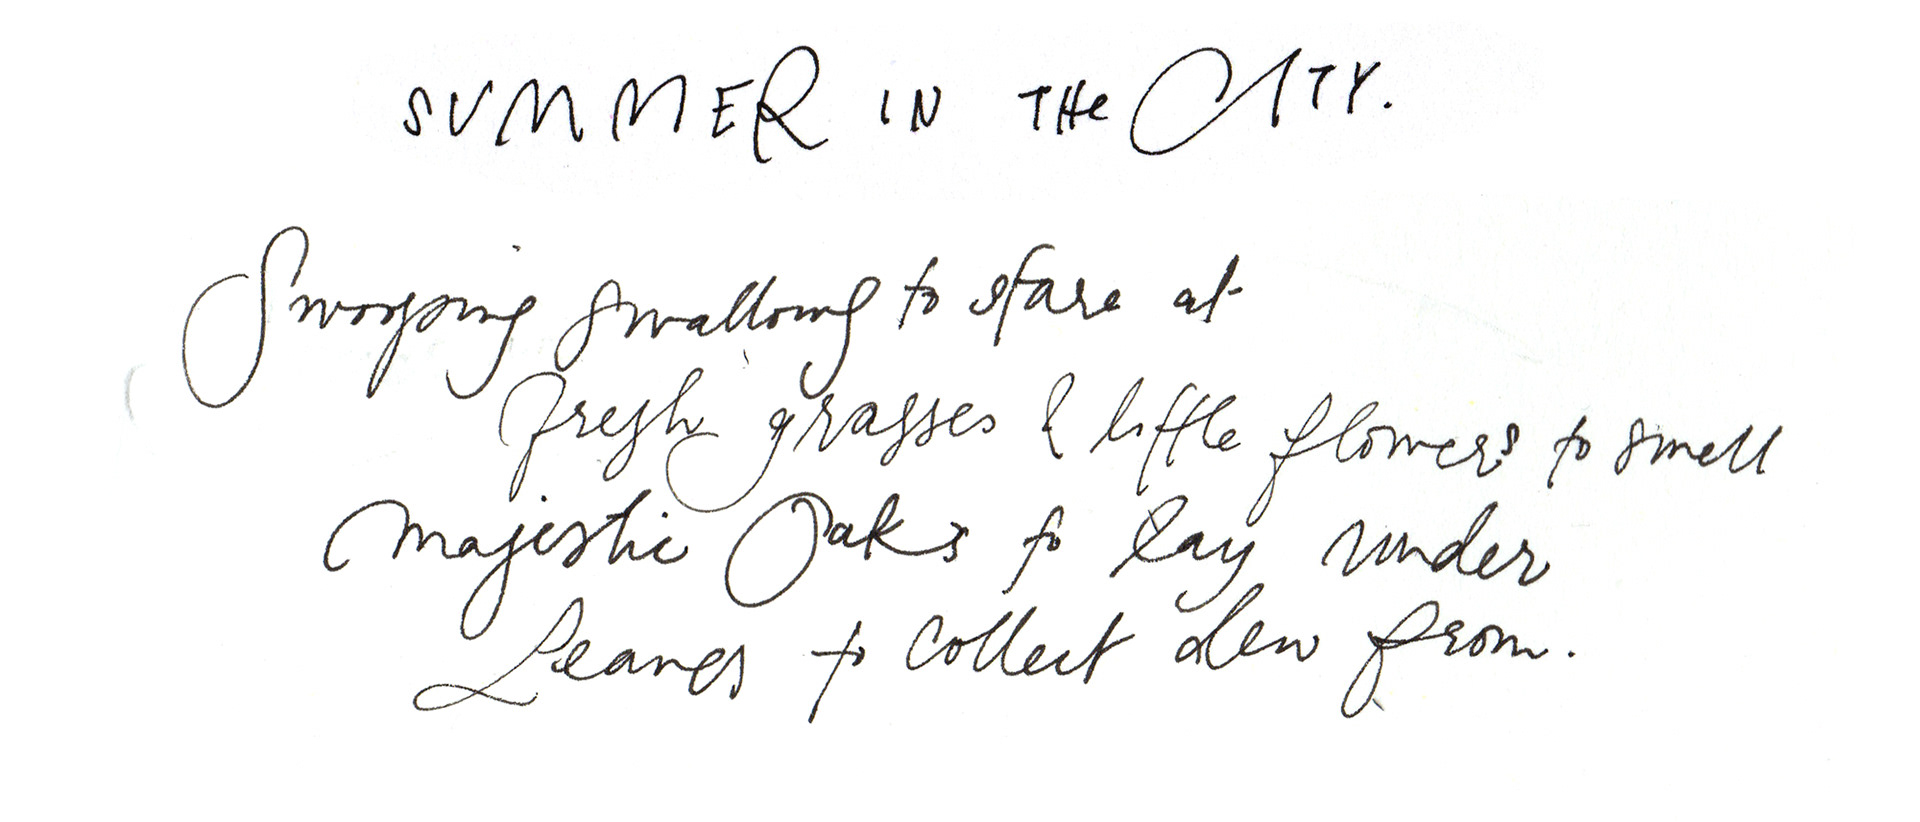 SUMMER IN THe CITY.
Swooping swallows to stare at
fresh grasses & little flowers to smell
majestic Oaks to lay under
Leaves to collect dew from.